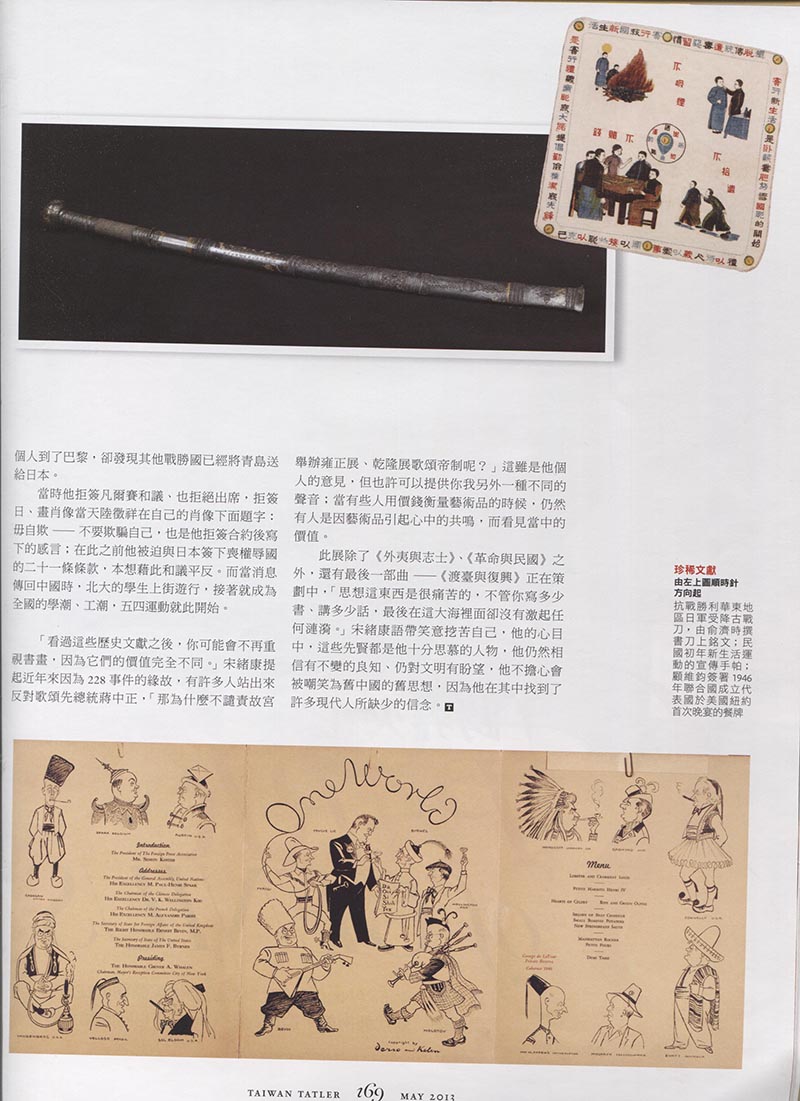 不吸煙
不賭錢
不拾遺
個人到了巴黎，卻發現其他戰勝國已經將青島送
給日本。
當時他拒簽凡爾賽和議、也拒絕出席，拒簽
日、畫肖像當天陸徵祥在自己的肖像下面題字：
毋自欺 —— 不要欺騙自己，也是他拒簽合約後寫
下的感言；在此之前他被迫與日本簽下喪權辱國
的二十一條條款，本想藉此和議平反。而當消息
傳回中國時，北大的學生上街遊行，接著就成為
全國的學潮、工潮，五四運動就此開始。
「看過這些歷史文獻之後，你可能會不再重
視書畫，因為它們的價值完全不同。」宋緒康提
起近年來因為 228 事件的緣故，有許多人站出來
反對歌頌先總統蔣中正，「那為什麼不譴責故宮
舉辦雍正展、乾隆展歌頌帝制呢？」這雖是他個
人的意見，但也許可以提供你我另外一種不同的
聲音；當有些人用價錢衡量藝術品的時候，仍然
有人是因藝術品引起心中的共鳴，而看見當中的
價值。
此展除了《外夷與志士》、《革命與民國》之
外，還有最後一部曲 ——《渡臺與復興》正在策
劃中，「思想這東西是很痛苦的，不管你寫多少
書、講多少話，最後在這大海裡面卻沒有激起任
何漣漪。」宋緒康語帶笑意挖苦自己，他的心目
中，這些先賢都是他十分思慕的人物，他仍然相
信有不變的良知、仍對文明有盼望，他不擔心會
被嘲笑為舊中國的舊思想，因為他在其中找到了
許多現代人所缺少的信念。T
珍稀文獻
由左上圖順時針
方向起
抗戰勝利華東地
區日軍受降古戰
刀，由俞濟時撰
書刀上銘文；民
國初年新生活運
動的宣傳手帕；
顧維鈞簽署 1946
年聯合國成立代
表國於美國紐約
首次晚宴的餐牌
One World
SPAAK BELGIUM
AUSTIN U.S.A.
Introduction
The President of The Foreign Press Association
Mr. Simon Koster
Addresses
The President of the General Assembly, United Nations
His Excellency M. Paul-Henri Spaak
The Chairman of the Chinese Delegation
His Excellency Dr. V. K. Wellington Koo
The Chairman of the French Delegation
His Excellency M. Alexandre Parodi
The Secretary of State for Foreign Affairs of the United Kingdom
The Right Honorable Ernest Bevin, M.P.
The Secretary of State of The United States
The Honorable James F. Byrnes
Presiding
The Honorable Grover A. Whalen
Chairman, Mayor's Reception Committee City of New York
VANDENBERG U.S.A.
SOL BLOOM U.S.A.
TRYGVE LIE
BYRNES
PARODI
BEVIN
MOLOTOV
Copyright by
Derso and Kelen
Menu
Lobster and Crabmeat Louis
Petite Marmite Henri IV
Hearts of Celery
Ripe and Green Olives
New Stringbeans Sauté
Small Roasted Potatoes
Manhattan Bombe
Petits Fours
Demi Tasse
Cabernet 1940
CONNALLY U.S.A.
TAIWAN TATLER 169 MAY 2013